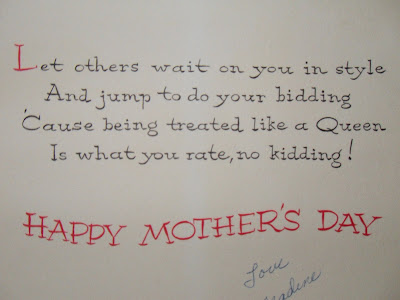 Let others wait on you in style
And jump to do your bidding
'Cause being treated like a Queen
Is what you rate, no kidding!
HAPPY MOTHER'S DAY
Love